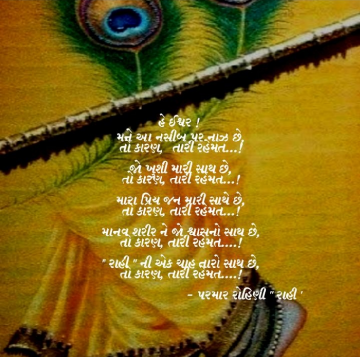 હે ઈશ્વર !
મને આ નસીબ પર નાઝ છે,
તો કારણ, તારી રહેમત...!
જો ખુશી મારી સાથ છે,
તો કારણ, તારી રહેમત...!
મારા પ્રિય જન મારી સાથે છે,
તો કારણ, તારી રહેમત...!
માનવ શરીર ને જો શ્વાસનો સાથ છે,
તો કારણ, તારી રહેમત....!
" રાહી " ની એક ચાહ તારો સાથ છે,
તો કારણ, તારી રહેમત....!
- પરમાર રોહિણી " રાહી '